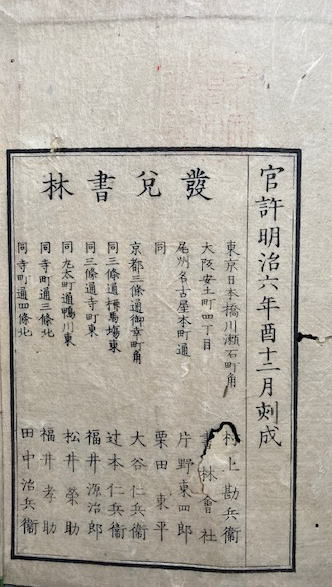 官許明治六年酉十二月刻成
發兌書林
東京日本橋川瀬石町角 村上勘兵衛
大阪安土町四丁目 書林會社
尾州名古屋本町通 片野東四郎
同 栗田東平
京都三條通御幸町角 大谷仁兵衛
同三條通柳馬場東 辻本仁兵衛
同三條通寺町東 福井源治郎
同丸太町通鴨川東 松井榮助
同寺町通三條北 福井孝助
同寺町通四條北 田中治兵衛